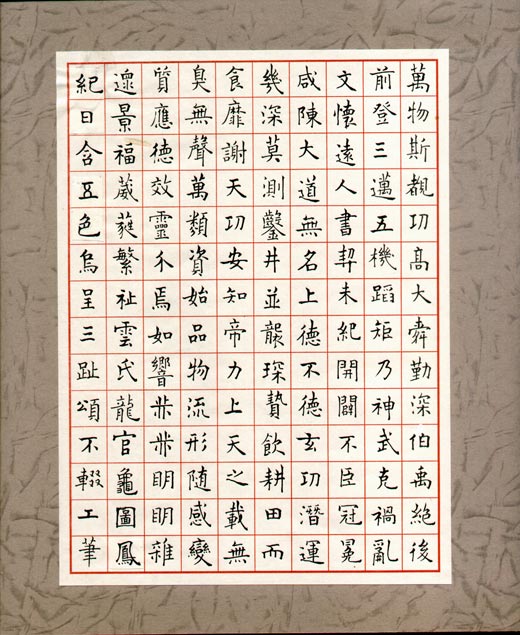 萬物斯覩功高大舜勤深伯禹絶後
前登三邁五機蹈矩乃神武克禍亂
文懷遠人書契未紀開闢不臣冠冕
咸陳大道無名上德不德玄功潛運
幾深莫測鑿井並襲琛贄飲耕田而
食靡謝天功安知帝力上天之載無
臭無聲萬類資始品物流形随感變
質應德效靈介焉如響赫赫明明雜
遝景福葳蕤繁祉雲氏龍官龜圖鳳
紀日含五色烏呈三趾頌不輟工筆